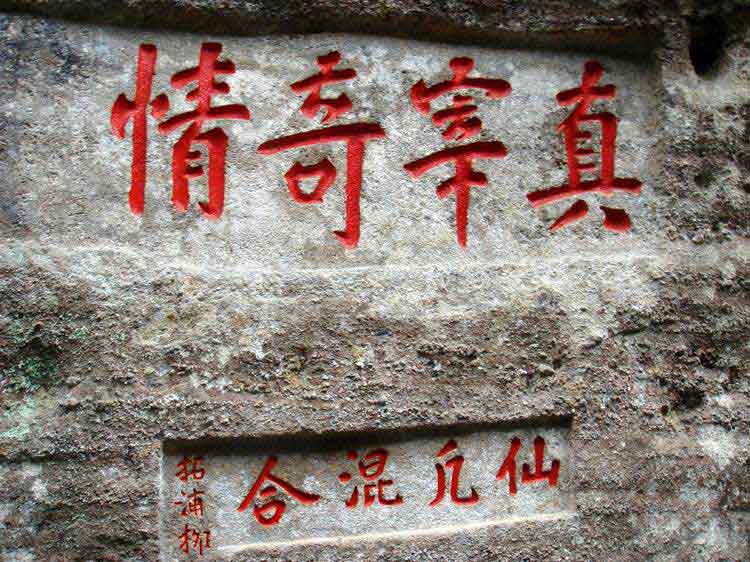 真宰奇情
仙凡混合
柘浦栁